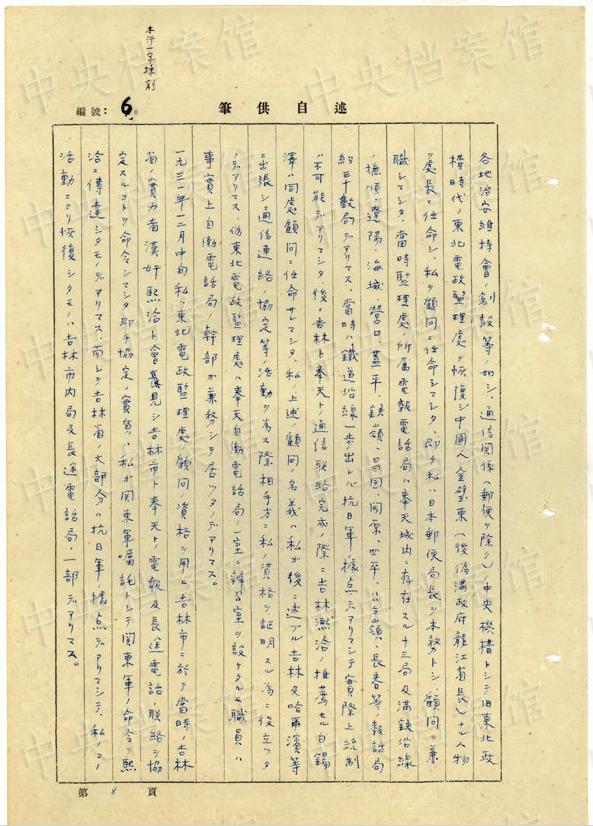 本行一字抹削
述自供筆
編號：6
各地治安維持會ノ創設等ノ如シ、通信関係(郵便ヲ除ク)ノ中央機構トシテ旧東北政
権時代ノ東北電政監理處ヲ恢復シ中国人金璧東(後偽満政府龍江省長)ナル人物
ヲ處長ニ任命シ、私ヲ顧問ニ任命シマシタ、即チ私ハ日本郵便局長ヲ本務トシ顧問ヲ兼
職シマシタ、當時監理處ノ所属電報電話局ハ奉天城内ニ存在スル十三局及満鉄沿線
ノ撫順、遼陽、海城、營口、蓋平、鉄嶺、昌図、開原、四平、公主嶺、長春等ノ報話局
約三十数局デアリマス、當時ハ鐵道沿線一歩出レバ抗日軍ノ據点デアリマシテ實際上統制
ハ不可能デアリマシタ、後ニ吉林ト奉天トノ通信聯絡完成ノ際ニ吉林熙洽ノ推薦セル白錫
澤ハ同處顧問ニ任命サレマシタ、私ノ上述ノ顧問ノ名義ハ私ガ後ニ述ブル吉林及哈爾濱等
ニ出張シテ通信連絡ノ協定等ノ活動ヲ為ス際相手方ニ私ノ資格ヲ証明スル為ニ役立ツタ
ノデアリマス、偽東北電政監理處ハ奉天自働電話局ノ一室ニ辨公室ヲ設ケタルモ職員ハ
事實上自働電話局ノ幹部ガ兼務シテ居ツタノデアリマス。
一九三一年一二月中旬私ハ東北電政監理處顧問ノ資格ヲ用ヒ吉林市ニ於テ當時ノ吉林
省ノ實力者漢奸熙洽ト會見シ吉林市ト奉天トノ電報及長途電話ノ聯絡ヲ協
定スルコトヲ命令シマシタ即チ協定ノ實質ハ私ガ関東軍嘱託トシテ関東軍ノ命令ヲ熙
洽ニ傳達シタモノデアリマス、而シテ吉林省ノ大部分ハ抗日軍ノ據点デアリマシテ、私ノコノ
活動ニヨリ恢復シタモノハ吉林市内局及長途電話局ノ一部デアリマス。
第 8 頁
中央档案馆